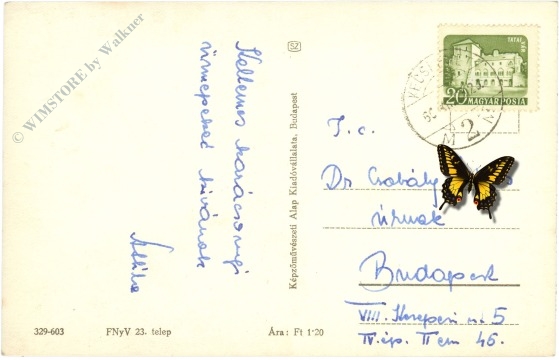 © WIMSTORE by Walkner
Kellemes karácsonyi
ünnepeket kívánok
Attila
SZ
Képzőművészeti Alap Kiadóvállalata, Budapest
TATAI VÁR
20 f MAGYAR POSTA
2
T. c.
Dr. Csabály
úrnak
Budapest
VIII. Kerepesi u. 5
IV. ép. II em 46.
329-603 FNyV 23. telep Ára: Ft 1·20